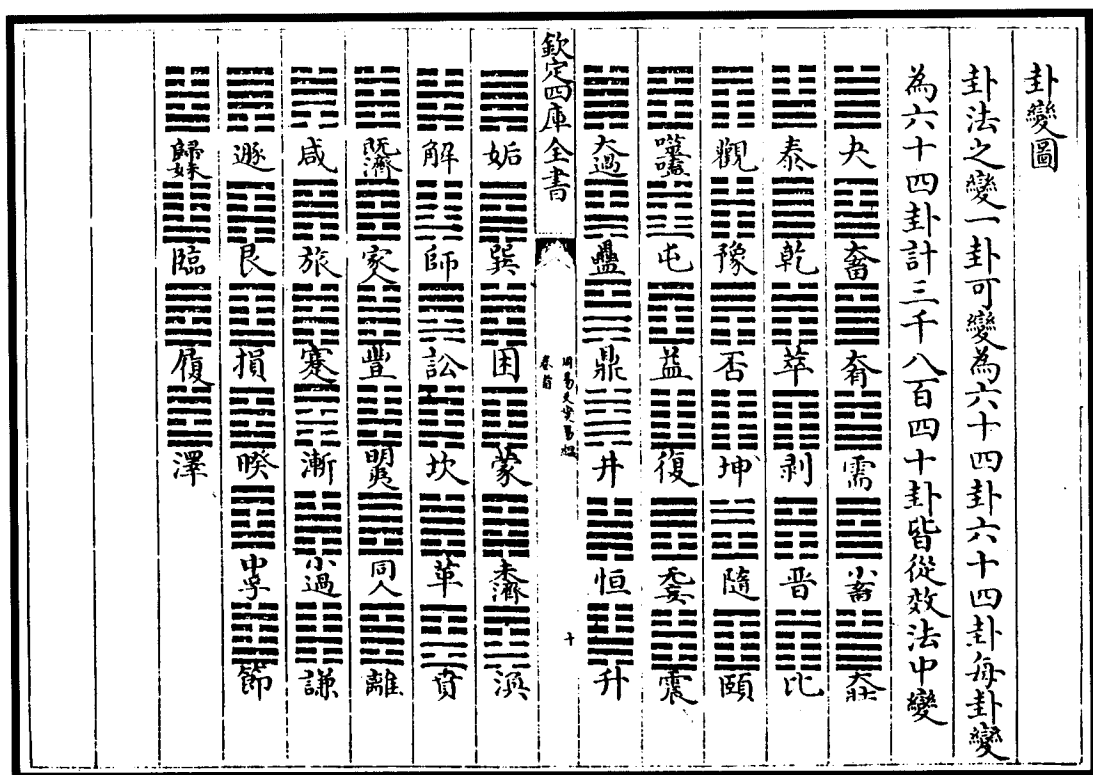 卦變圖
卦法之變一卦可變為六十四卦六十四卦每卦變
為六十四卦計三千八百四十卦皆從效法中變
夬 大畜 大有 需 小畜 大壯
泰 乾 萃 剥 晋 比
觀 豫 否 坤 隨 頤
噬嗑 屯 益 復 无妄 震
大過 蠱 鼎 井 恒 升
欽定四庫全書
周易爻變易縕
卷首
十
姤 巽 困 蒙 未濟 渙
解 師 訟 坎 革 賁
既濟 家人 豐 明夷 同人 離
咸 旅 蹇 漸 小過 謙
遯 艮 損 睽 中孚 節
歸妹 臨 履 澤